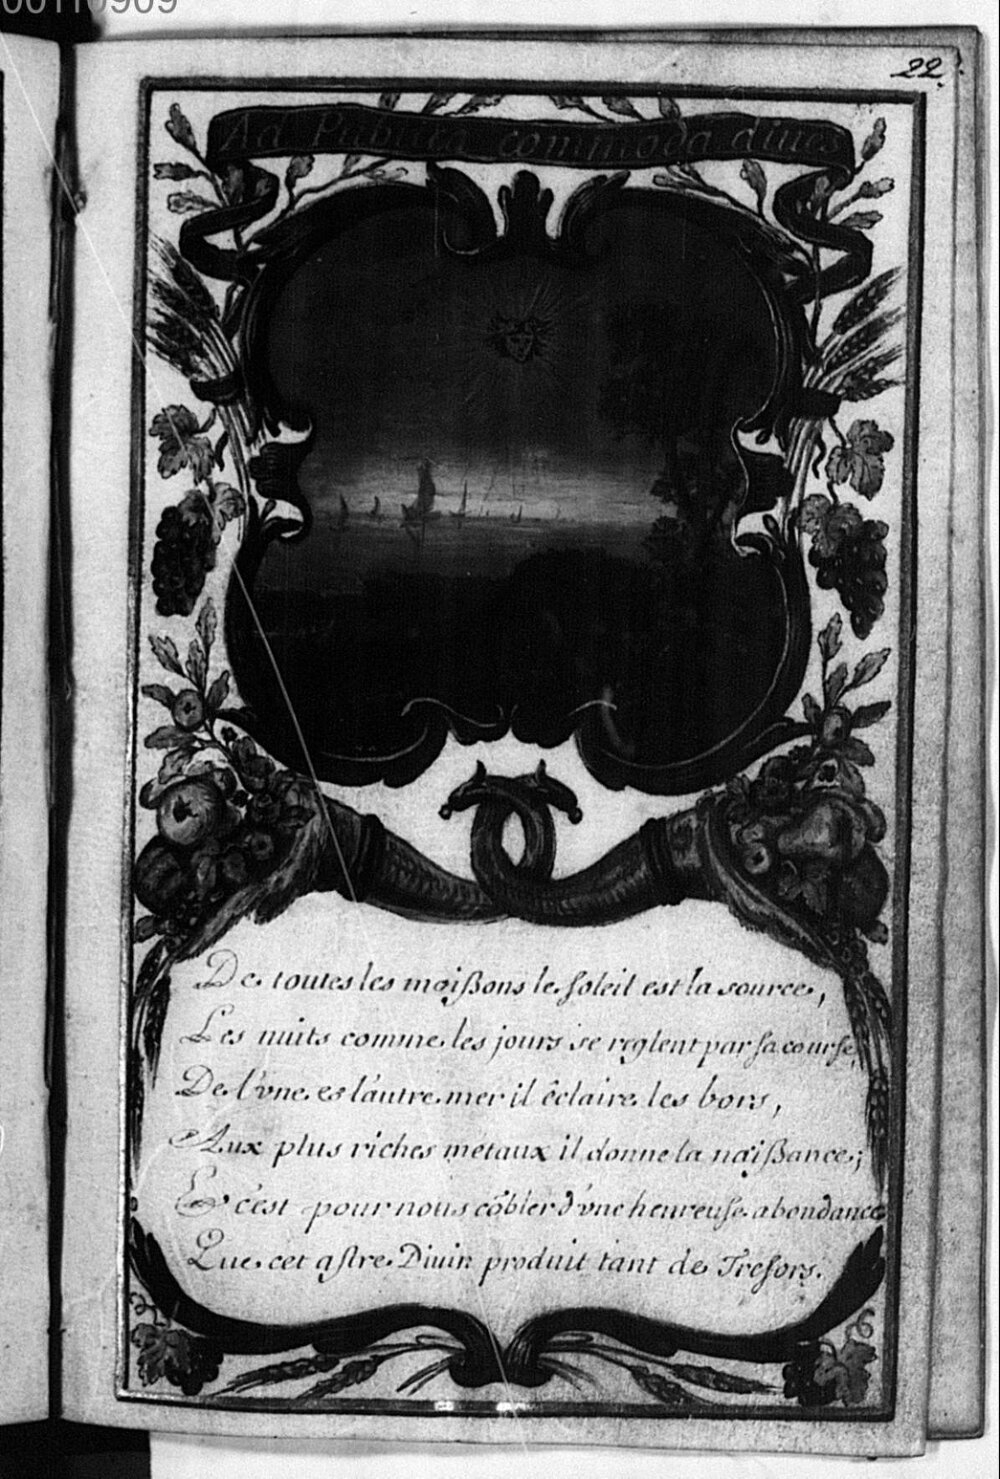 00110909
22.
Ad Publica commoda diues
De toutes les moißons le soleil est la source,
Les nuits comme les jours se reglent par sa course,
De l'vne et l'autre mer il éclaire les bors,
Aux plus riches metaux il donne la naißance;
Et c'est pour nous cõbler d'vne heureuse abondance
Que cet astre Diuin produit tant de Tresors.